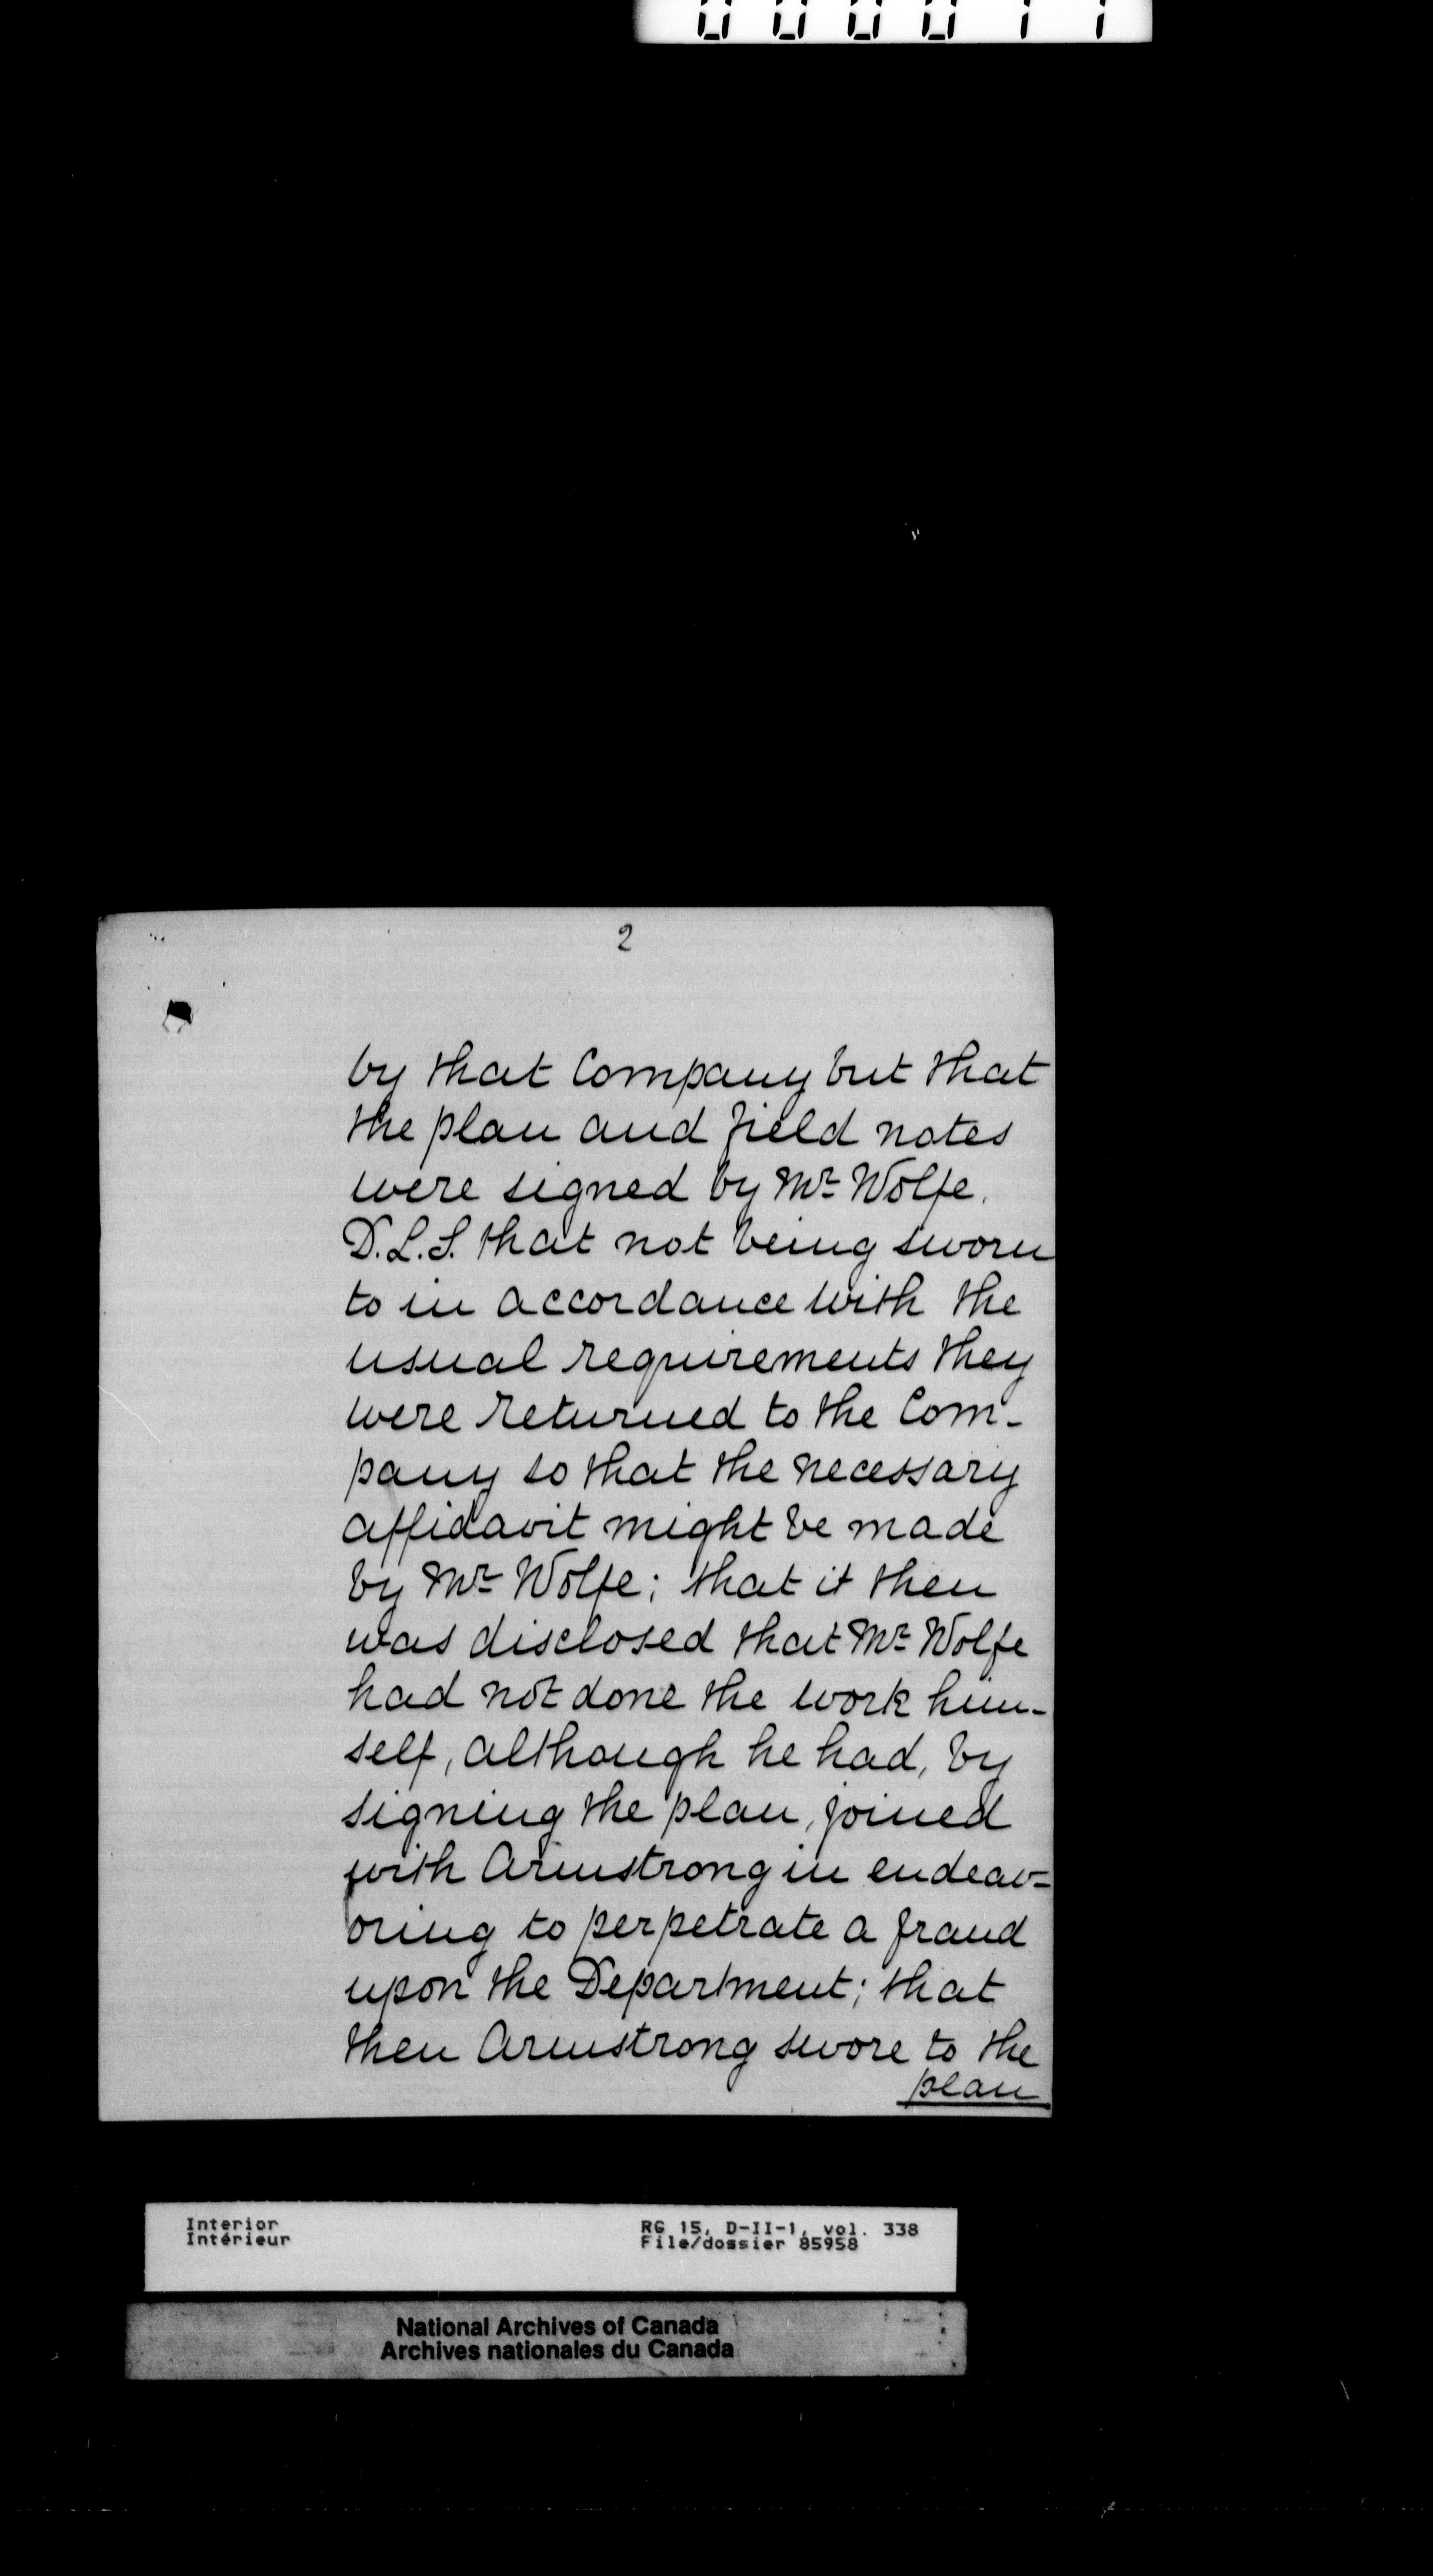 2
by that Company but that
the plan and field notes
were signed by Mr Wolfe.
D.L.S. that not being sworn
to in accordance with the
usual requirements they
were returned to the Com-
pany so that the necessary
affidavit might be made
by Mr Wolfe; that it then
was disclosed that Mr Wolfe
had not done the work him-
self, although he had, by
signing the plan, joined
with Armstrong in endeav=
oring to perpetrate a fraud
upon the Department; that
then Armstrong swore to the
plan
Interior
Intérieur
RG 15, D-II-1, vol. 338
File/dossier 85958
National Archives of Canada
Archives nationales du Canada